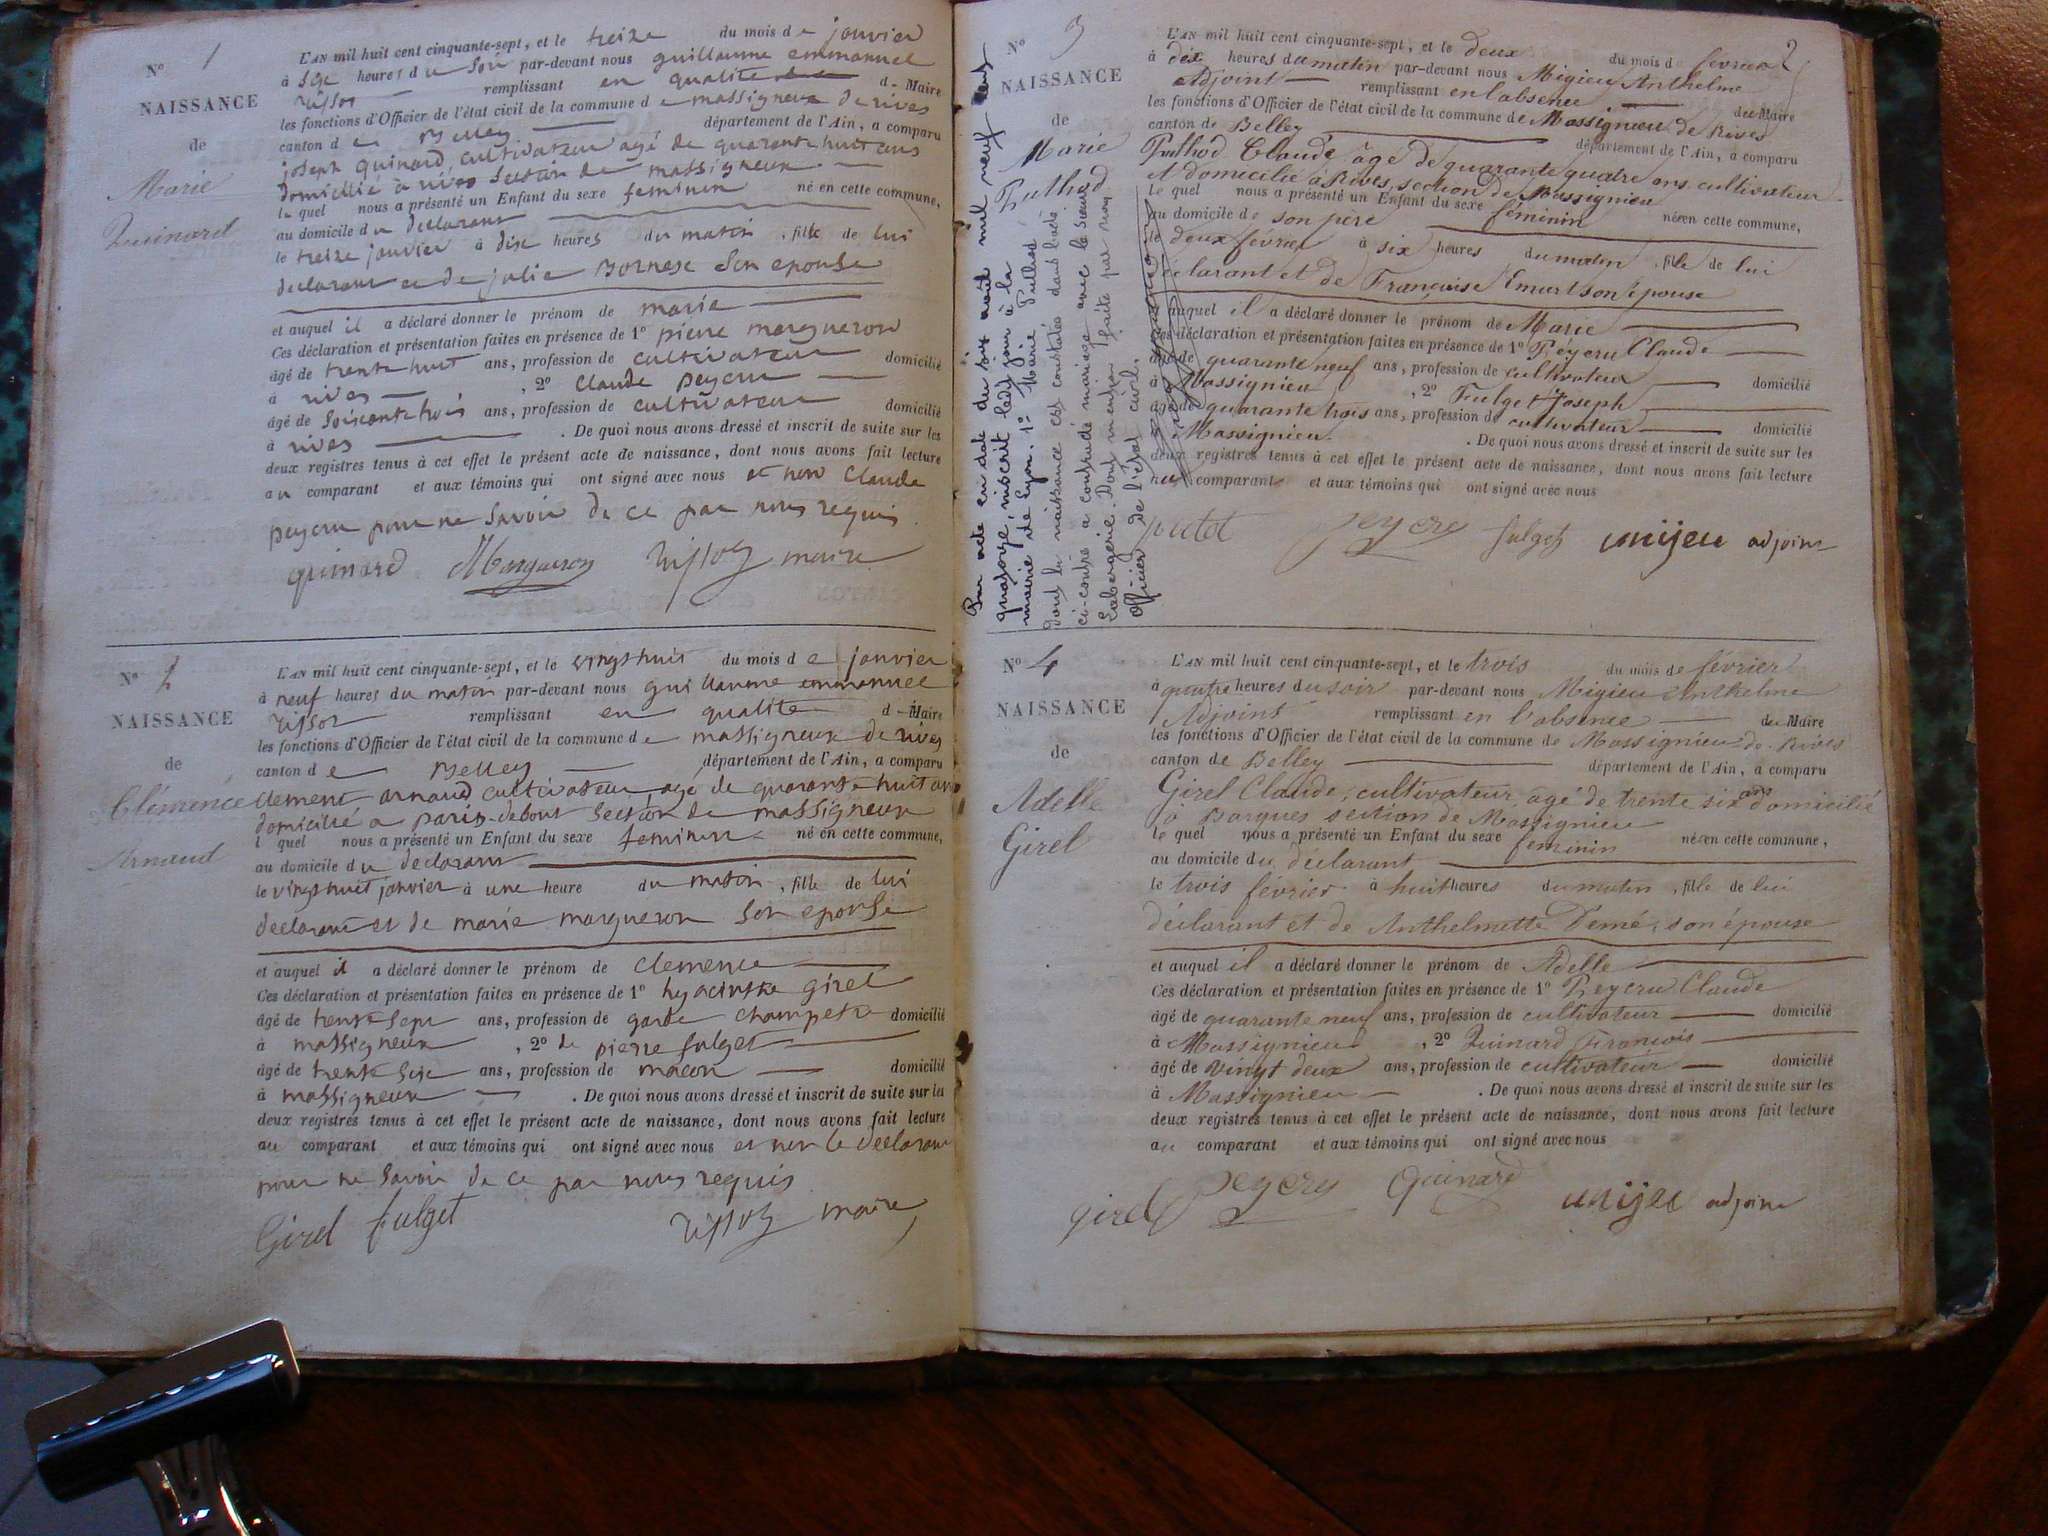 N° 1
NAISSANCE
de
Marie
Quinard
L'AN mil huit cent cinquante-sept, et le treize du mois de janvier
à six heures du soir par-devant nous guillaume emmanuel
tissot remplissant en qualite de Maire
les fonctions d'Officier de l'état civil de la commune de massigneux de rives
canton de Belley département de l'Ain, a comparu
joseph quinard cultivateur agé de quarante huit ans
domicilié a rives section de massigneux
le quel nous a présenté un Enfant du sexe feminin né en cette commune,
au domicile du declarant
le treize janvier à dix heures du matin, fille de lui
declarant et de julie Bornese son epouse
et auquel il a déclaré donner le prénom de marie
Ces déclaration et présentation faites en présence de 1° pierre margueron
âgé de trente huit ans, profession de cultivateur domicilié
à rives, 2° Claude peyeru
âgé de soixante trois ans, profession de cultivateur domicilié
à rives. De quoi nous avons dressé et inscrit de suite sur les
deux registres tenus à cet effet le présent acte de naissance, dont nous avons fait lecture
au comparant et aux témoins qui ont signé avec nous et non Claude
peyeru pour ne savoir de ce par nous requis
quinard Margueron tissot maire
N° 2
NAISSANCE
de
Clémence
Arnaud
L'AN mil huit cent cinquante-sept, et le vingt huit du mois de janvier
à neuf heures du matin par-devant nous guillaume emmanuel
tissot remplissant en qualite d Maire
les fonctions d'Officier de l'état civil de la commune de massigneux de rives
canton de Belley département de l'Ain, a comparu
clement arnaud cultivateur agé de quarante huit ans
domicilié a paris-debout section de massigneux
l quel nous a présenté un Enfant du sexe feminin né en cette commune,
au domicile du declarant
le vingt huit janvier à une heure du matin, fille de lui
declarant et de marie margueron son epouse
et auquel il a déclaré donner le prénom de clemence
Ces déclaration et présentation faites en présence de 1° hyacinthe girel
âgé de trente sept ans, profession de garde champetre domicilié
à massigneux, 2° de pierre fulget
âgé de trente six ans, profession de macon domicilié
à massigneux. De quoi nous avons dressé et inscrit de suite sur les
deux registres tenus à cet effet le présent acte de naissance, dont nous avons fait lecture
au comparant et aux témoins qui ont signé avec nous et non le declarant
pour ne savoir de ce par nous requis
Girel fulget tissot maire
2
N° 3
NAISSANCE
de
Marie
Puthod
Par acte en date du six avril mil neuf cent
quatorze, inscrit led. jour à la
mairie de Lyon. 1° Marie Puthod
dont la naissance est constatée dans l'acte
ci-contre a contracté mariage avec le sieur
Labergerie. Dont mention faite par nous
officier de l'état civil.
L'AN mil huit cent cinquante-sept, et le deux du mois de février
à dix heures du matin par-devant nous Migieu Anthelme
Adjoint remplissant en l'absence du Maire
les fonctions d'Officier de l'état civil de la commune de Massignieu de Rives
canton de Belley département de l'Ain, a comparu
Puthod Claude âgé de quarante quatre ans cultivateur
et domicilié à Rives, section de Massignieu
le quel nous a présenté un Enfant du sexe féminin né en cette commune,
au domicile de son père
le deux février à six heures du matin, fille de lui
déclarant et de Françoise Emurt son épouse
et auquel il a déclaré donner le prénom de Marie
Ces déclaration et présentation faites en présence de 1° Péyeru Claude
âgé de quarante neuf ans, profession de cultivateur domicilié
à Massignieu, 2° Fulget Joseph
âgé de quarante trois ans, profession de cultivateur domicilié
à Massignieu. De quoi nous avons dressé et inscrit de suite sur les
deux registres tenus à cet effet le présent acte de naissance, dont nous avons fait lecture
au comparant et aux témoins qui ont signé avec nous
putot peyeru fulget mijeu adjoint
N° 4
NAISSANCE
de
Adelle
Girel
L'AN mil huit cent cinquante-sept, et le trois du mois de février
à quatre heures du soir par-devant nous Migieu Anthelme
Adjoint remplissant en l'absence du Maire
les fonctions d'Officier de l'état civil de la commune de Massignieu-de-Rives
canton de Belley département de l'Ain, a comparu
Girel Claude, cultivateur, âgé de trente six ans domicilié
à Barques section de Massignieu
le quel nous a présenté un Enfant du sexe féminin né en cette commune,
au domicile du déclarant
le trois février à huit heures du matin, fille de lui
déclarant et de Anthelmette Demé, son épouse
et auquel il a déclaré donner le prénom de Adelle
Ces déclaration et présentation faites en présence de 1° Peyeru Claude
âgé de quarante neuf ans, profession de cultivateur domicilié
à Massignieu, 2° Quinard François
âgé de vingt deux ans, profession de cultivateur domicilié
à Massignieu. De quoi nous avons dressé et inscrit de suite sur les
deux registres tenus à cet effet le présent acte de naissance, dont nous avons fait lecture
au comparant et aux témoins qui ont signé avec nous
girel peyeru Quinard mijeu adjoint